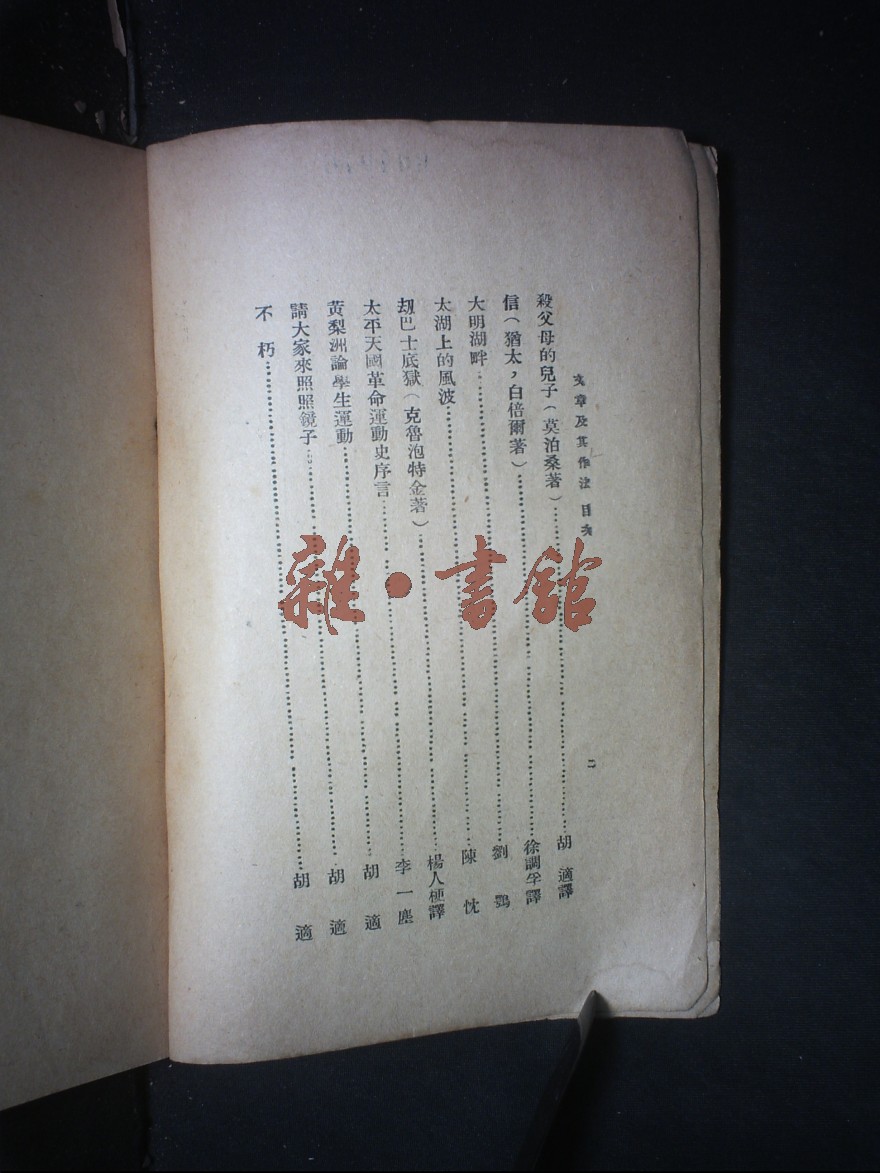 文章及其作法 目次
二
殺父母的兒子(莫泊桑著)……胡適譯
信(猶太,白倍爾著)……徐調孚譯
大明湖畔……劉鶚
太湖上的風波……陳忱
刼巴士底獄(克魯泡特金著)……楊人楩譯
太平天國革命運動史序言……李一塵
黃梨洲論學生運動……胡適
請大家來照照鏡子……胡適
不朽……胡適
雜·書館